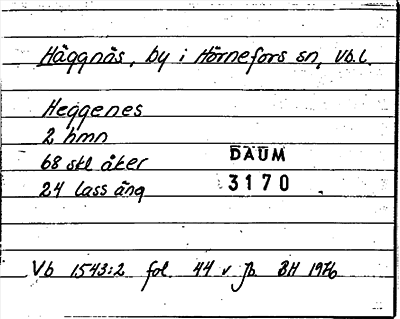 Häggnäs, by i Hörnefors sn, Vb.l.
Heggenes
2 hmn
68 skl åker
24 lass äng
DAUM
3170
Vb 1543:2 fol. 44 v Jb. BH 1976